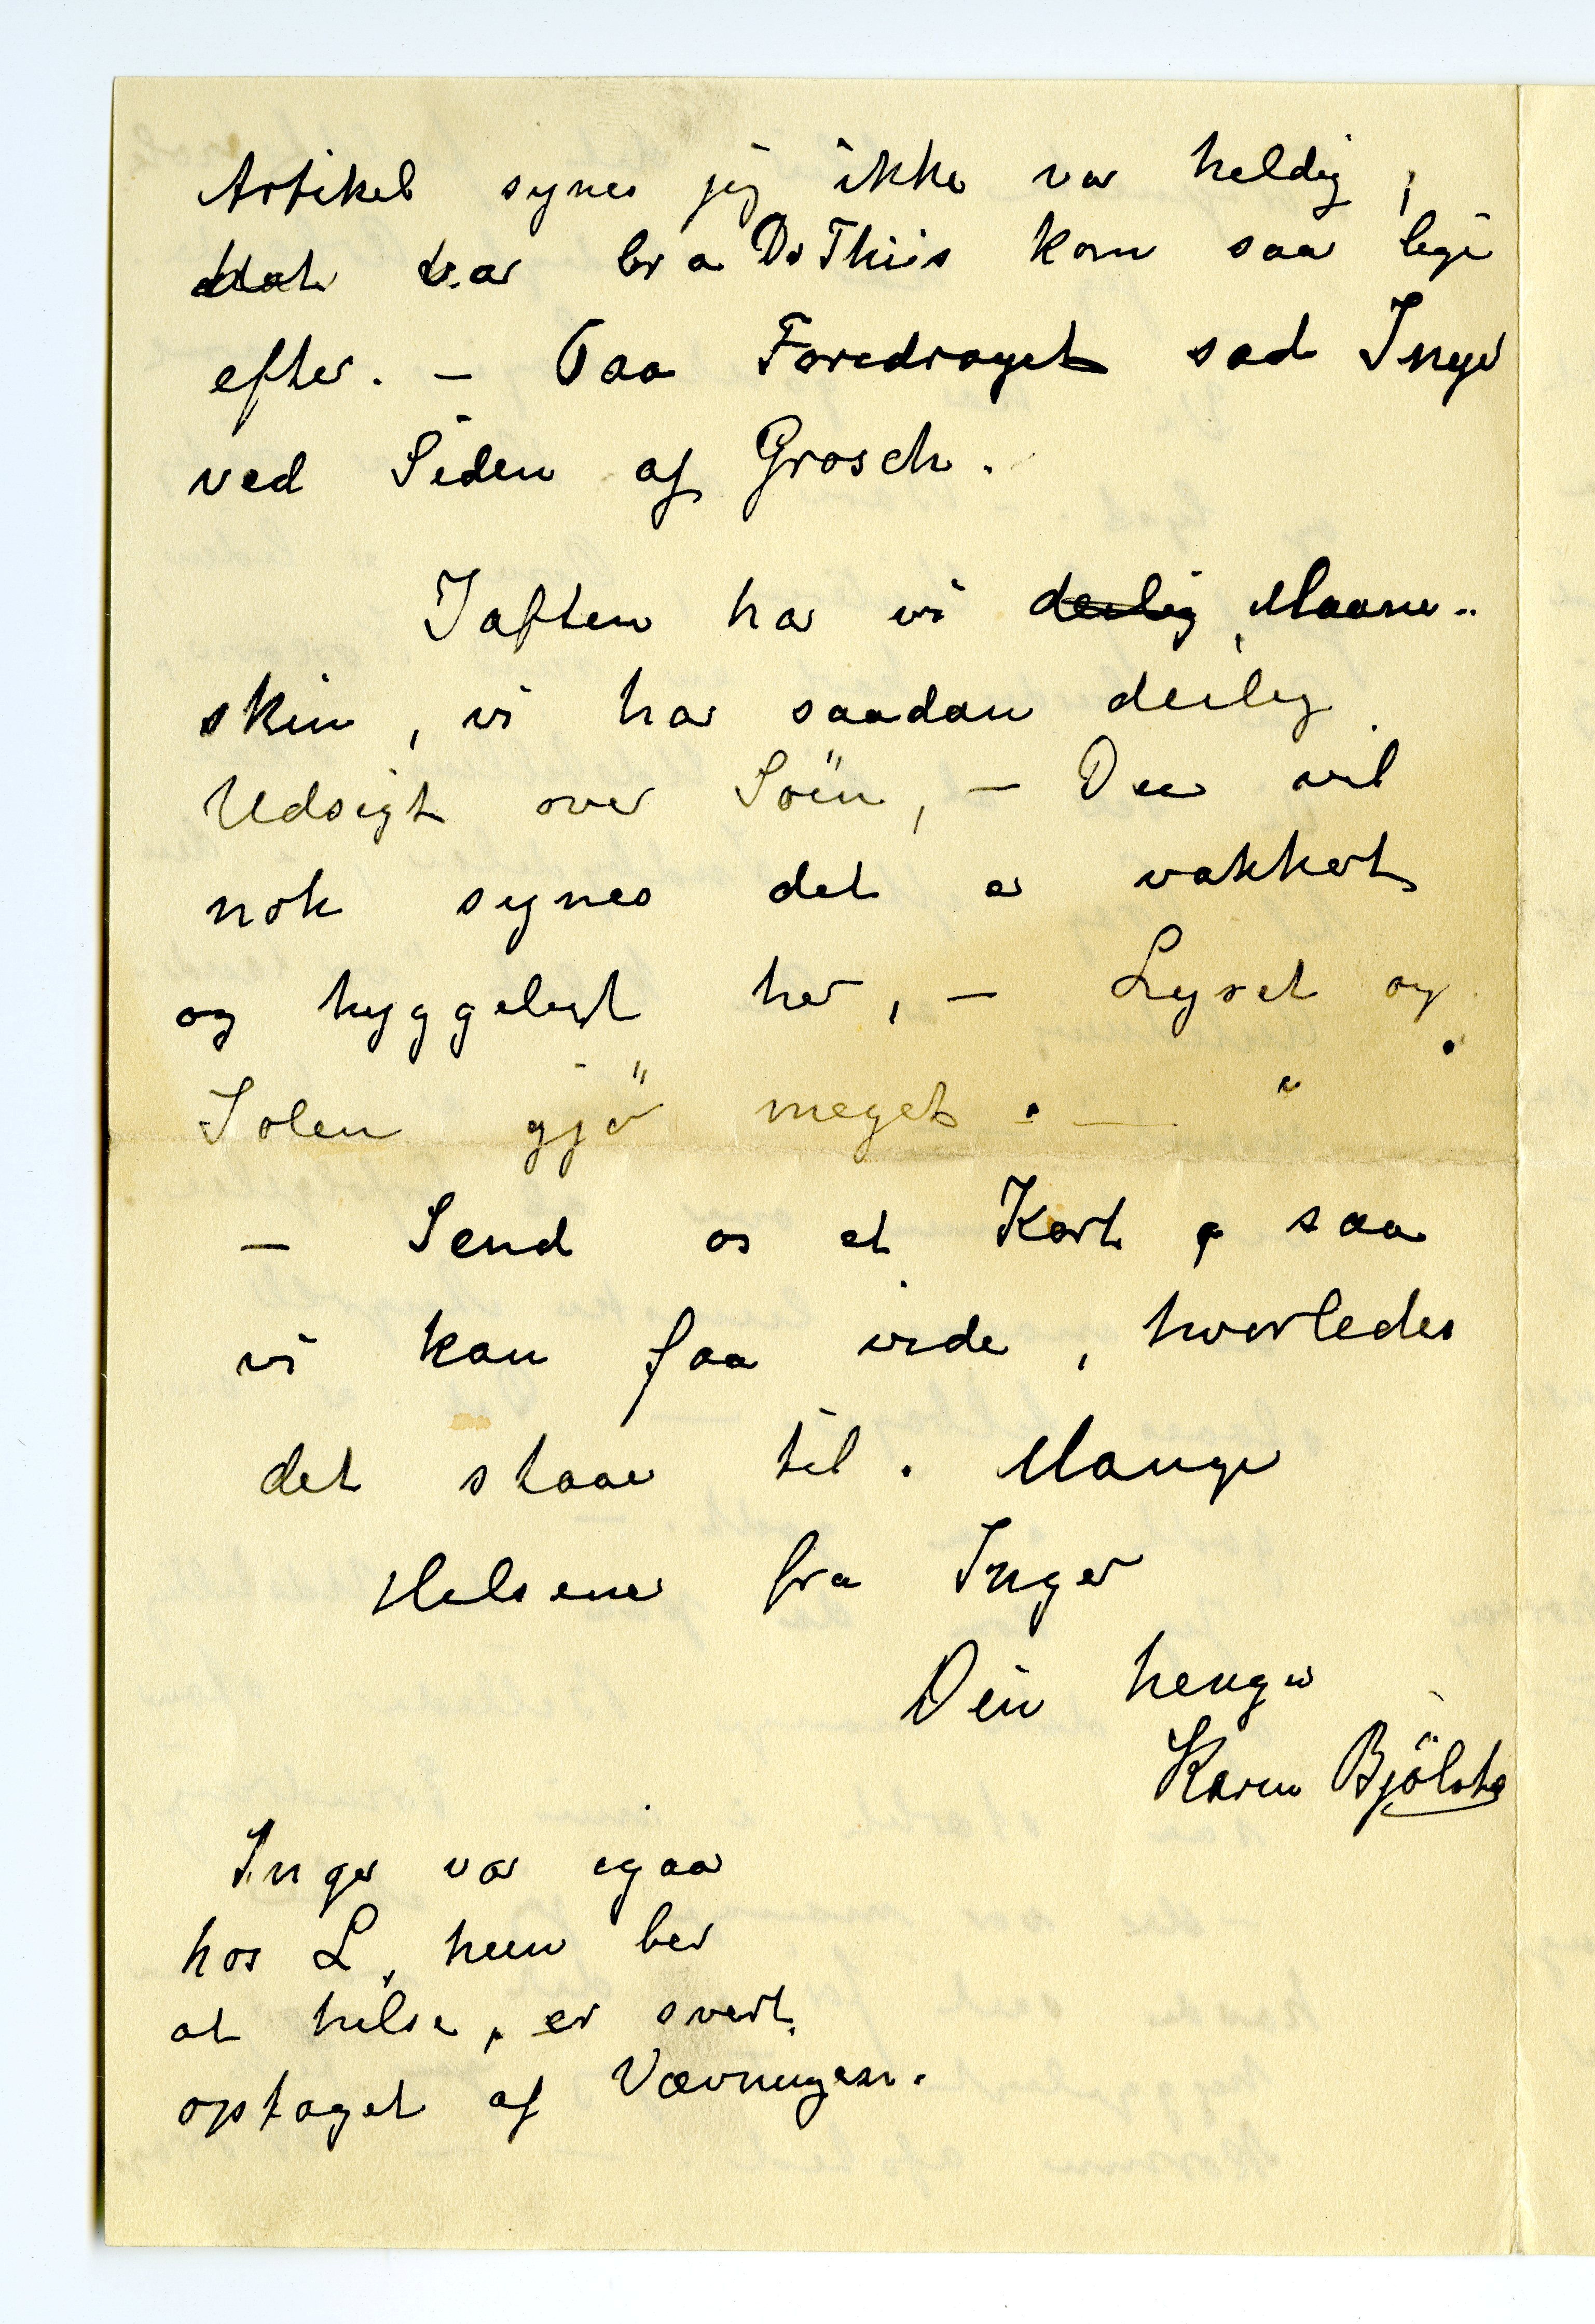 Artikel synes jeg ikke var heldig,
det var bra Dr Thiis kom saa lige
efter. – Paa Foredraget sad Inger
ved Siden af Grosch.
Iaften har vi deilig Maane-
skin, vi har saadan deilig
Udsigt over Söen, – Du vil
nok synes det er vakkert
og hyggeligt her, – Lyset og
Solen gjör meget. –
– Send os et Kort, saa
vi kan faa vide, hvorledes
det staar til. Mange
Hilsener fra Inger
Din hengivne
Karen Bjölstad
Inger var igaar
hos L, hun ber
at hilse, er svert
optaget af Vævningen.